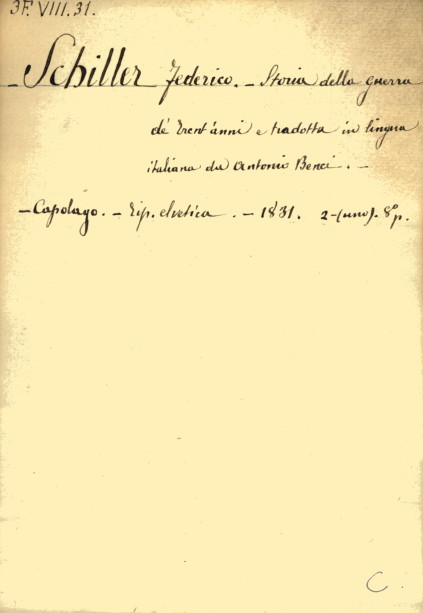 3F. VIII. 31.
- Schiller Federico. - Storia della guerra
de' Trent'anni e tradotta in lingua
italiana da Antonio Benci. -
- Capolago. - Tip. elvetica. - 1831. 2-(uno). 8° p.
C.